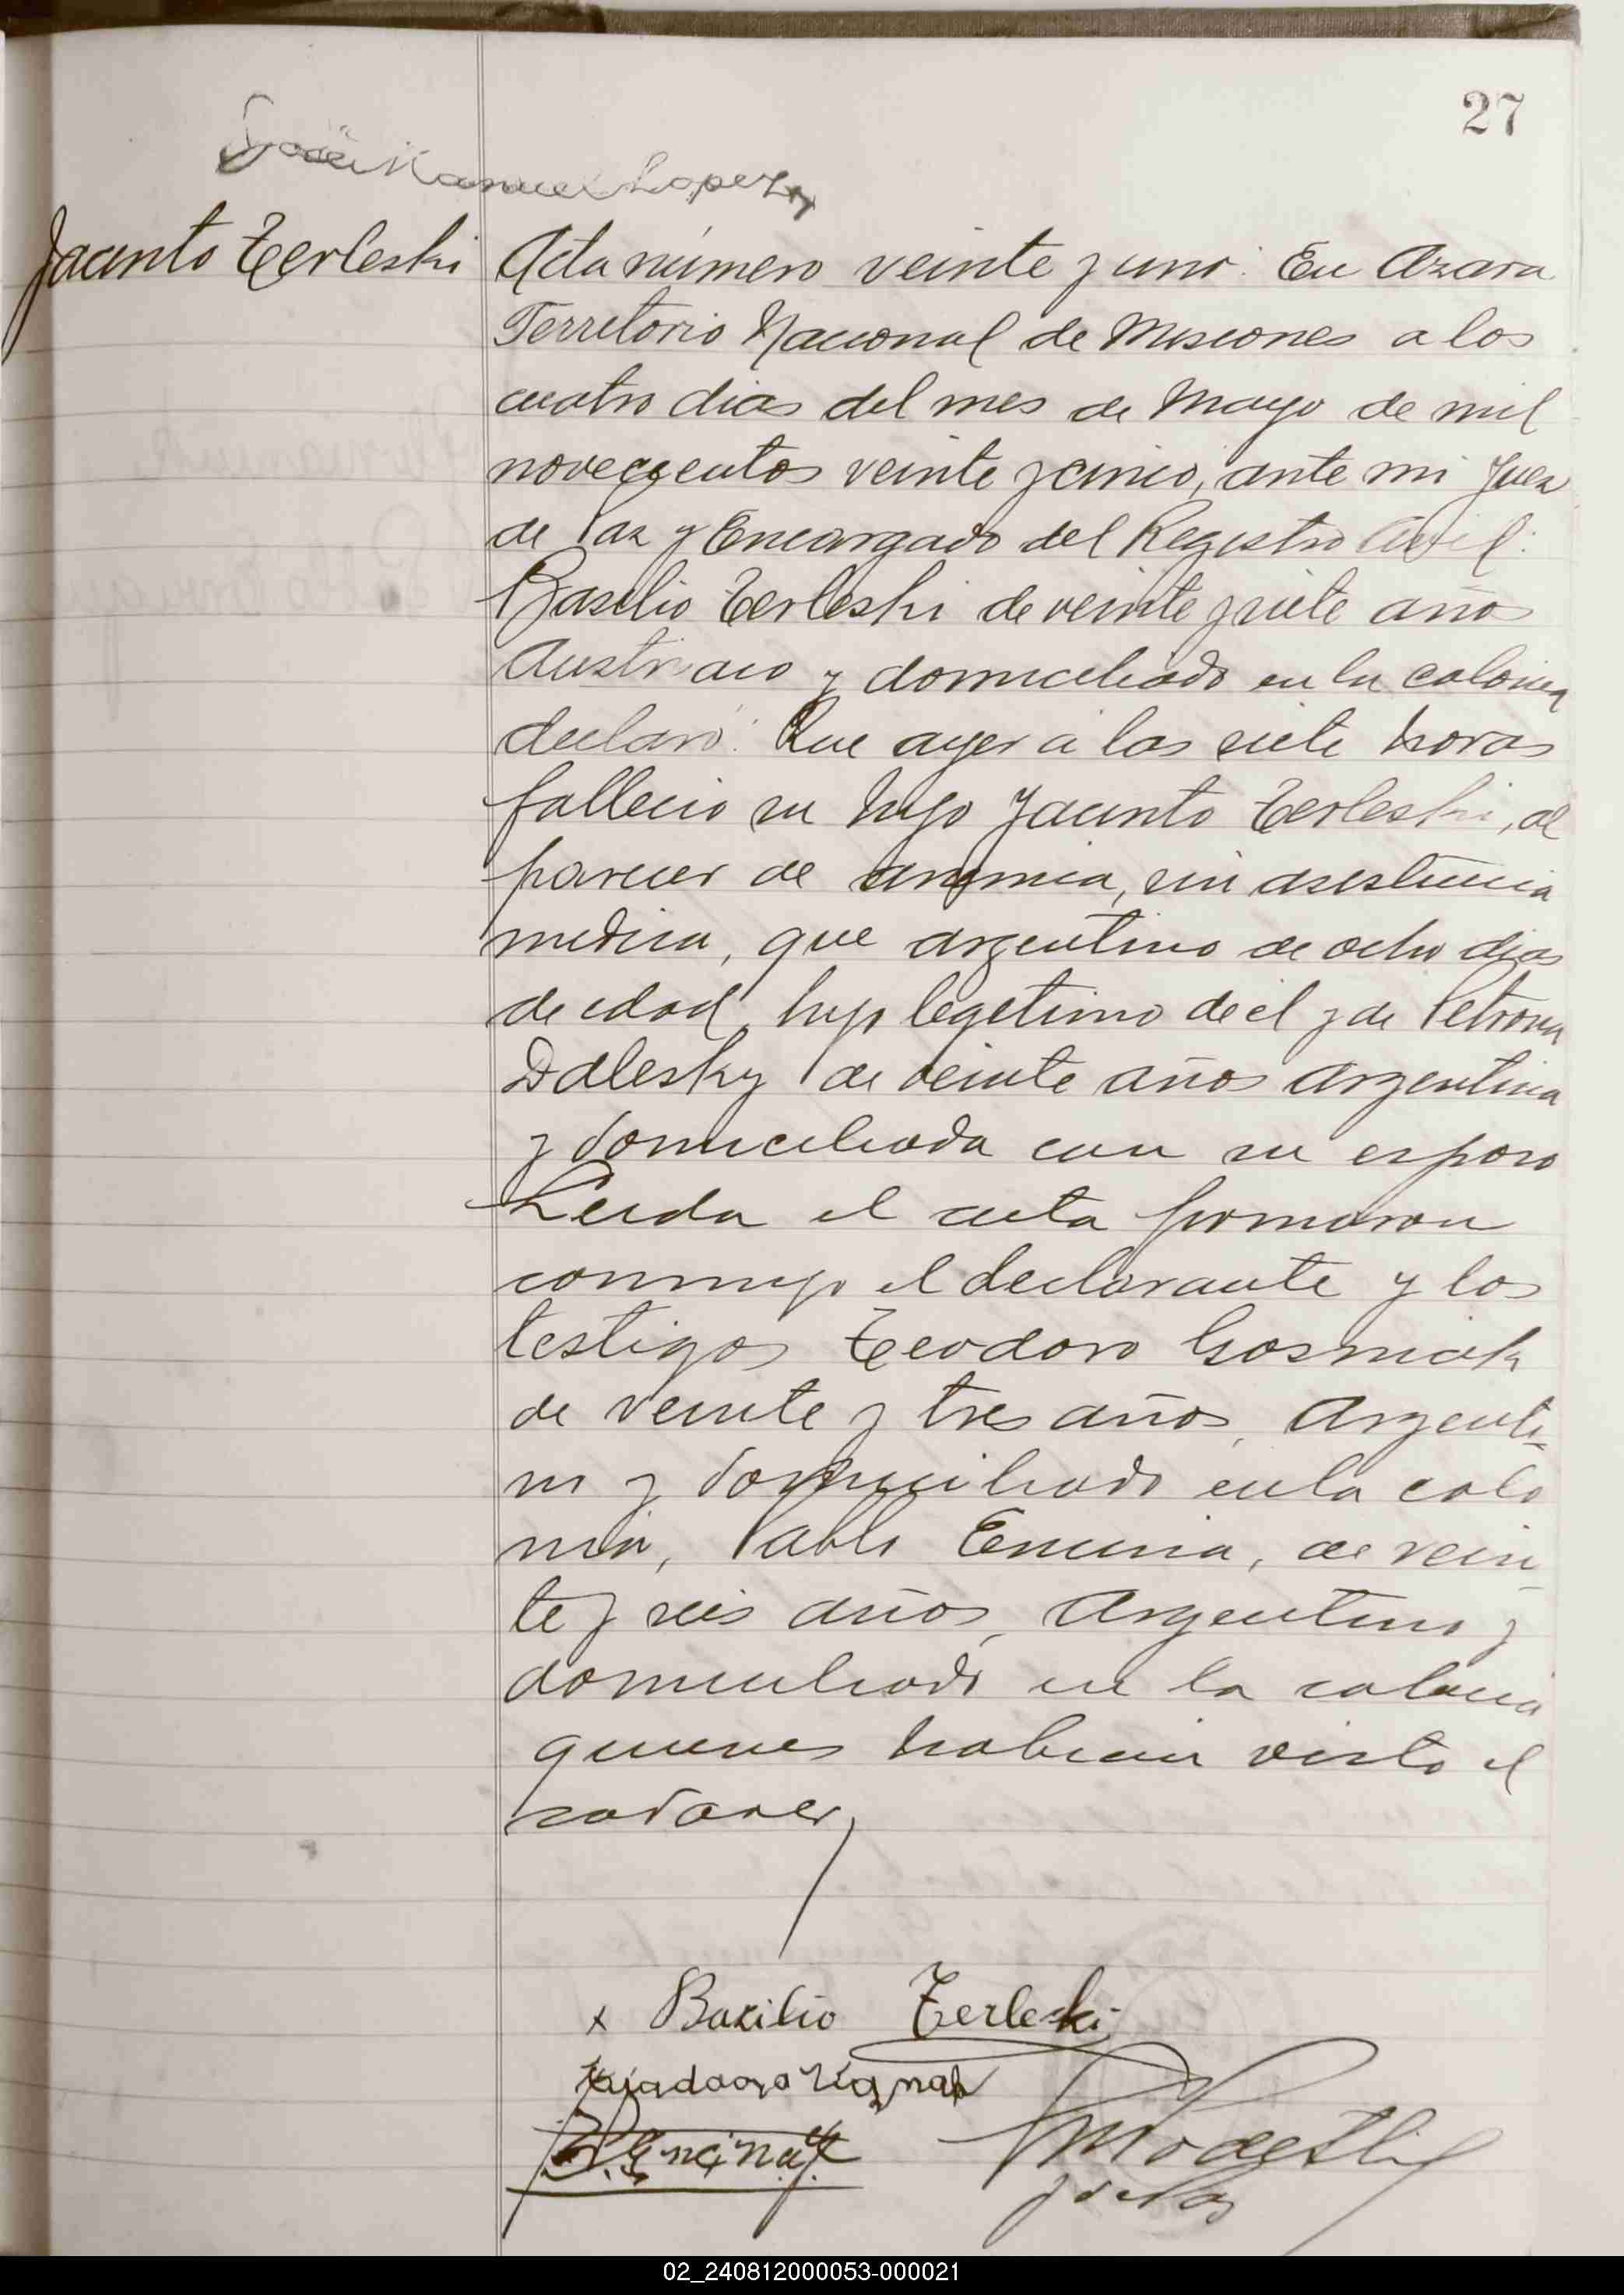 27
José Manuel Lopez
Jacinto Terleski
Acta número veinte y uno. En Azara
Territorio Nacional de Misiones a los
cuatro dias del mes de Mayo de mil
novecientos veinte y cinco, ante mi Juez
de Paz y Encargado del Registro Civil:
Basilio Terleski de veinte y siete años
Austriaco y domiciliado en la colonia
declaró: Que ayer a las siete horas
fallecio su hijo Jacinto Terleski, al
parecer de anemia, sin asistencia
medica, que argentino de ocho dias
de edad, hijo legitimo de el y de Petrona
Dalesky de veinte años Argentina
y domiciliada con su esposo
Leida el acta firmaron
conmigo el declarante y los
testigos Teodoro
de veinte y tres años, Argenti-
no y domiciliado en la colo
nia, Pablo Encina, de vein
te y seis años, Argentino y
domiciliado en la colonia
quienes habian visto el
cadaver
x Basilio Terleski
P. Encina
J de Paz
02_240812000053-000021